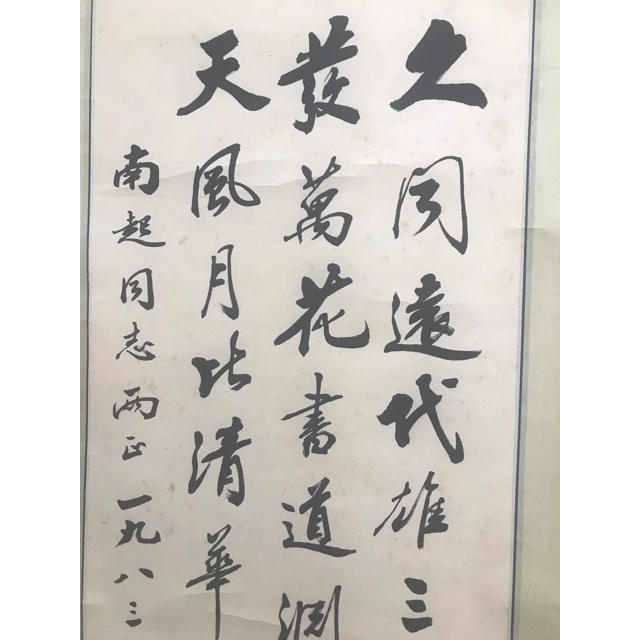 久同遠代雄三
發萬花書道淵
天風月比清華
南起同志両正一九八三